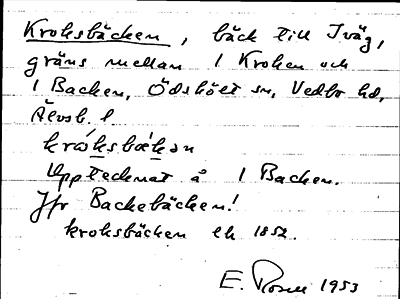 Kroksbäcken, bäck till Iväg,
gräns mellan 1 Kroken och
1 Backen, Ödskölt sn, Vedbo hd,
Älvsb. l.
kråksbäkan
Upptecknat å 1 Backen.
Jfr Backebäcken!
kroksbäcken ek 1852.
E. Rosen 1953